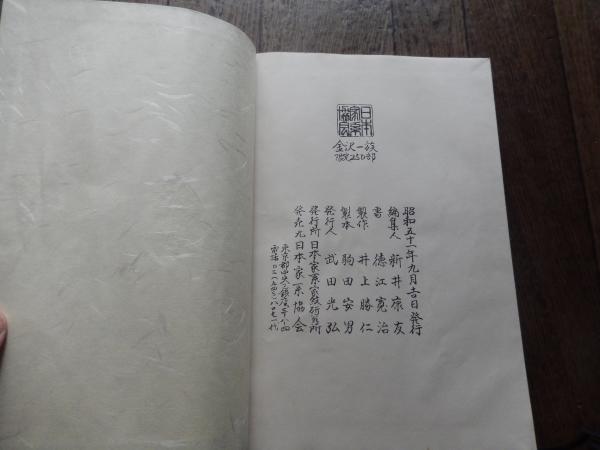 日本家系協会
金沢一族
限定250部
昭和五十一年九月十日発行
編集人 新井康友
書 徳江寛治
製作 井上勝仁
製本 駒田安男
発行人 武田光弘
発行所 日本家系家紋研究所
発売元 日本家系協会
東京都中央区銀座